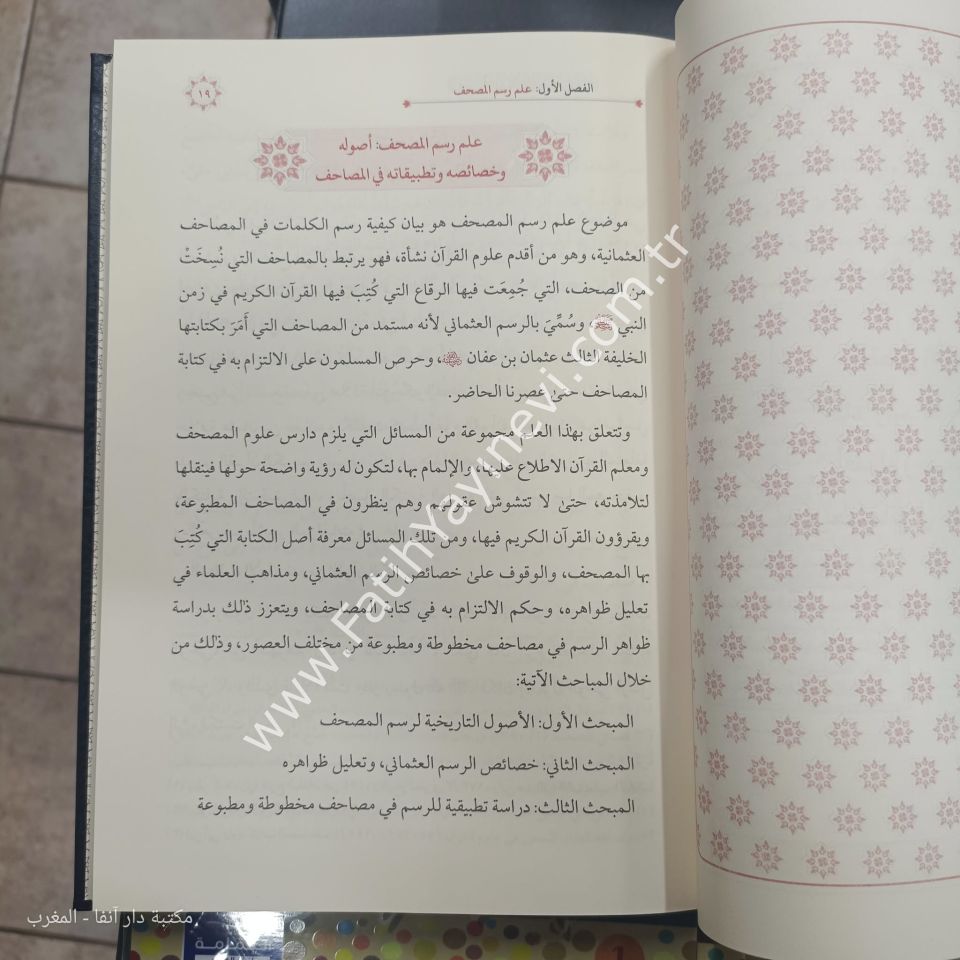 الفصل الأول: علم رسم المصحف
١٩
علم رسم المصحف: أصوله
وخصائصه وتطبيقاته في المصاحف
موضوع علم رسم المصحف هو بيان كيفية رسم الكلمات في المصاحف
العثمانية، وهو من أقدم علوم القرآن نشأة، فهو يرتبط بالمصاحف التي نُسِخَتْ
من الصحف، التي جُمِعَت فيها الرقاع التي كُتِبَ فيها القرآن الكريم في زمن
النبي ﷺ، وسُمِّيَ بالرسم العثماني لأنه مستمد من المصاحف التي أَمَرَ بكتابتها
الخليفة الثالث عثمان بن عفان، وحرص المسلمون على الالتزام به في كتابة
المصاحف حتىٰ عصرنا الحاضر.
وتتعلق بهٰذا العلم مجموعة من المسائل التي يلزم دارس علوم المصحف
ومعلم القرآن الاطلاع عليها، والإلمام بها، لتكون له رؤية واضحة حولها فينقلها
لتلامذته، حتىٰ لا تتشوش عقولهم وهم ينظرون في المصاحف المطبوعة،
ويقرؤون القرآن الكريم فيها، ومن تلك المسائل معرفة أصل الكتابة التي كُتِبَ
بها المصحف، والوقوف علىٰ خصائص الرسم العثماني، ومذاهب العلماء في
تعليل ظواهره، وحكم الالتزام به في كتابة المصاحف، ويتعزز ذلك بدراسة
ظواهر الرسم في مصاحف مخطوطة ومطبوعة من مختلف العصور، وذلك من
خلال المباحث الآتية:
المبحث الأول: الأصول التاريخية لرسم المصحف
المبحث الثاني: خصائص الرسم العثماني، وتعليل ظواهره
المبحث الثالث: دراسة تطبيقية للرسم في مصاحف مخطوطة ومطبوعة
www.FatihYayinevi.com.tr
مكتبة دار آنفا - المغرب